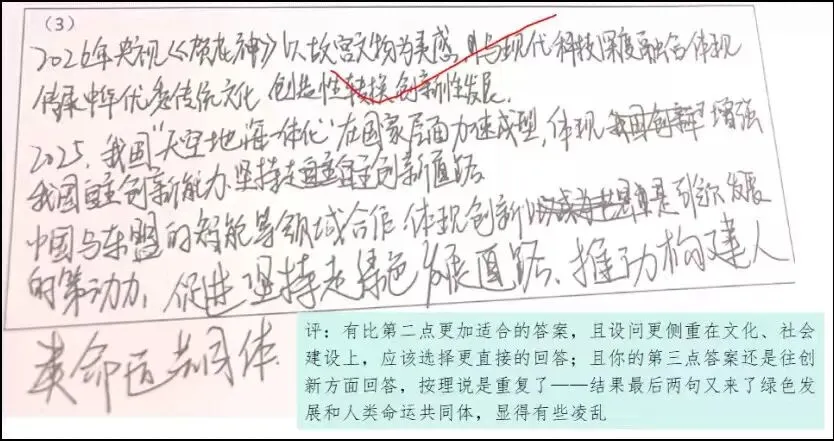 (3)
2026年央视《贺花神》以故宫文物为灵感,与现代科技深度融合体现
传承中华优秀传统文化 创造性转换创新性发展.
2025,我国"天空地海一体化"在国家层面加速成型,体现 增强
我国自主创新能力.坚持走自主创新道路
中国与东盟的智能等领域合作 体现创新 是引领发展
的第一动力,促进坚持走绿色发展道路、推动构建人
类命运共同体.
评:有比第二点更加适合的答案,且设问更侧重在文化、社会
建设上,应该选择更直接的回答;且你的第三点答案还是往创
新方面回答,按理说是重复了——结果最后两句又来了绿色发
展和人类命运共同体,显得有些凌乱